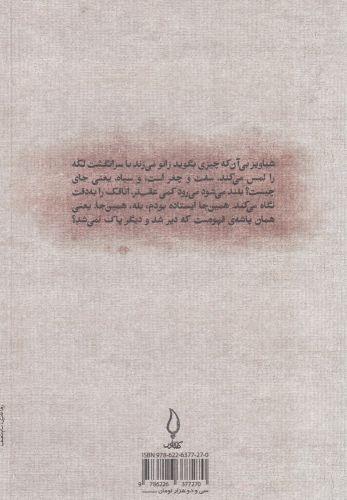 هیاویز بی‌آن‌که چیزی بگوید زانو می‌زند با سرانگشت لکه
را لمس می‌کند. سفت و چغر است، و سیاه. یعنی جای
چیست؟ بلند می‌شود می‌رود کمی عقب‌تر. اتاقک را به‌دقت
نگاه می‌کند. همین‌جا ایستاده بودم، بله، همین‌جا. یعنی
همان پاشه‌ی قهوه‌ست که دیر شد و دیگر پاک نمی‌شد؟
ISBN 978-622-6377-27-0
9 786226 377270
سی و دو هزار تومان